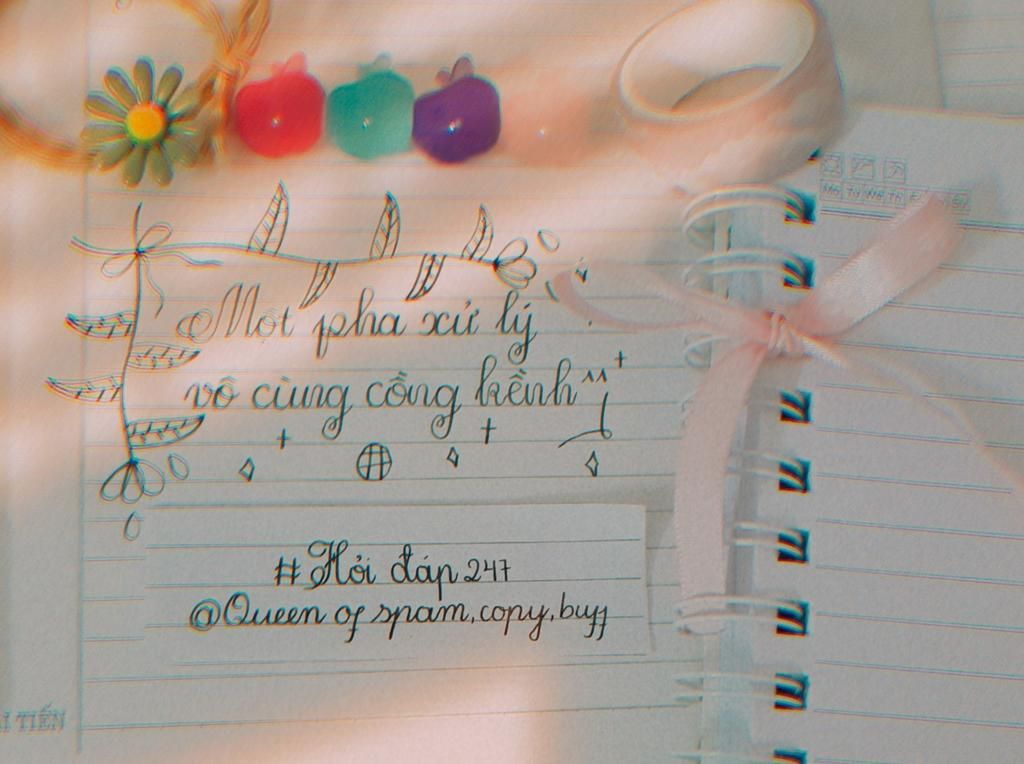 Một pha xử lý
vô cùng cồng kềnh ^^
#Hỏi đáp 247
@Queen of spam, copy, buff
TIẾN